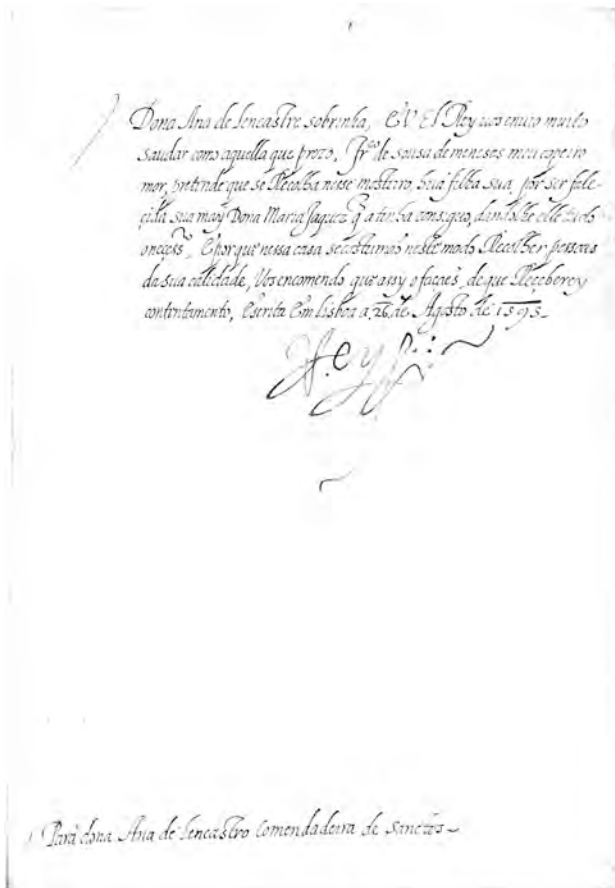 Dona Ana de lencastre sobrinha, EV El Rey uos enuio muito
saudar como aquella que prezo. frco de sousa de meneses meu copeiro
mor, pretende que se Recolha nesse mosteiro, hũa filha sua, por ser fale-
çida sua may Dona Maria Jaques q̃ a tinha consiguo, dandolhe elle tudo
o neçessrо. E porque nessa casa se costumão neste modo Recolher pessoas
da sua calidade, Vos encomendo que assy o façaes, de que Reçeberey
contentamento, Escrita Em lisboa a .26. de Agosto de 1593-
Rey
Para dona Ana de lencastro Comendadeira de sanctos-